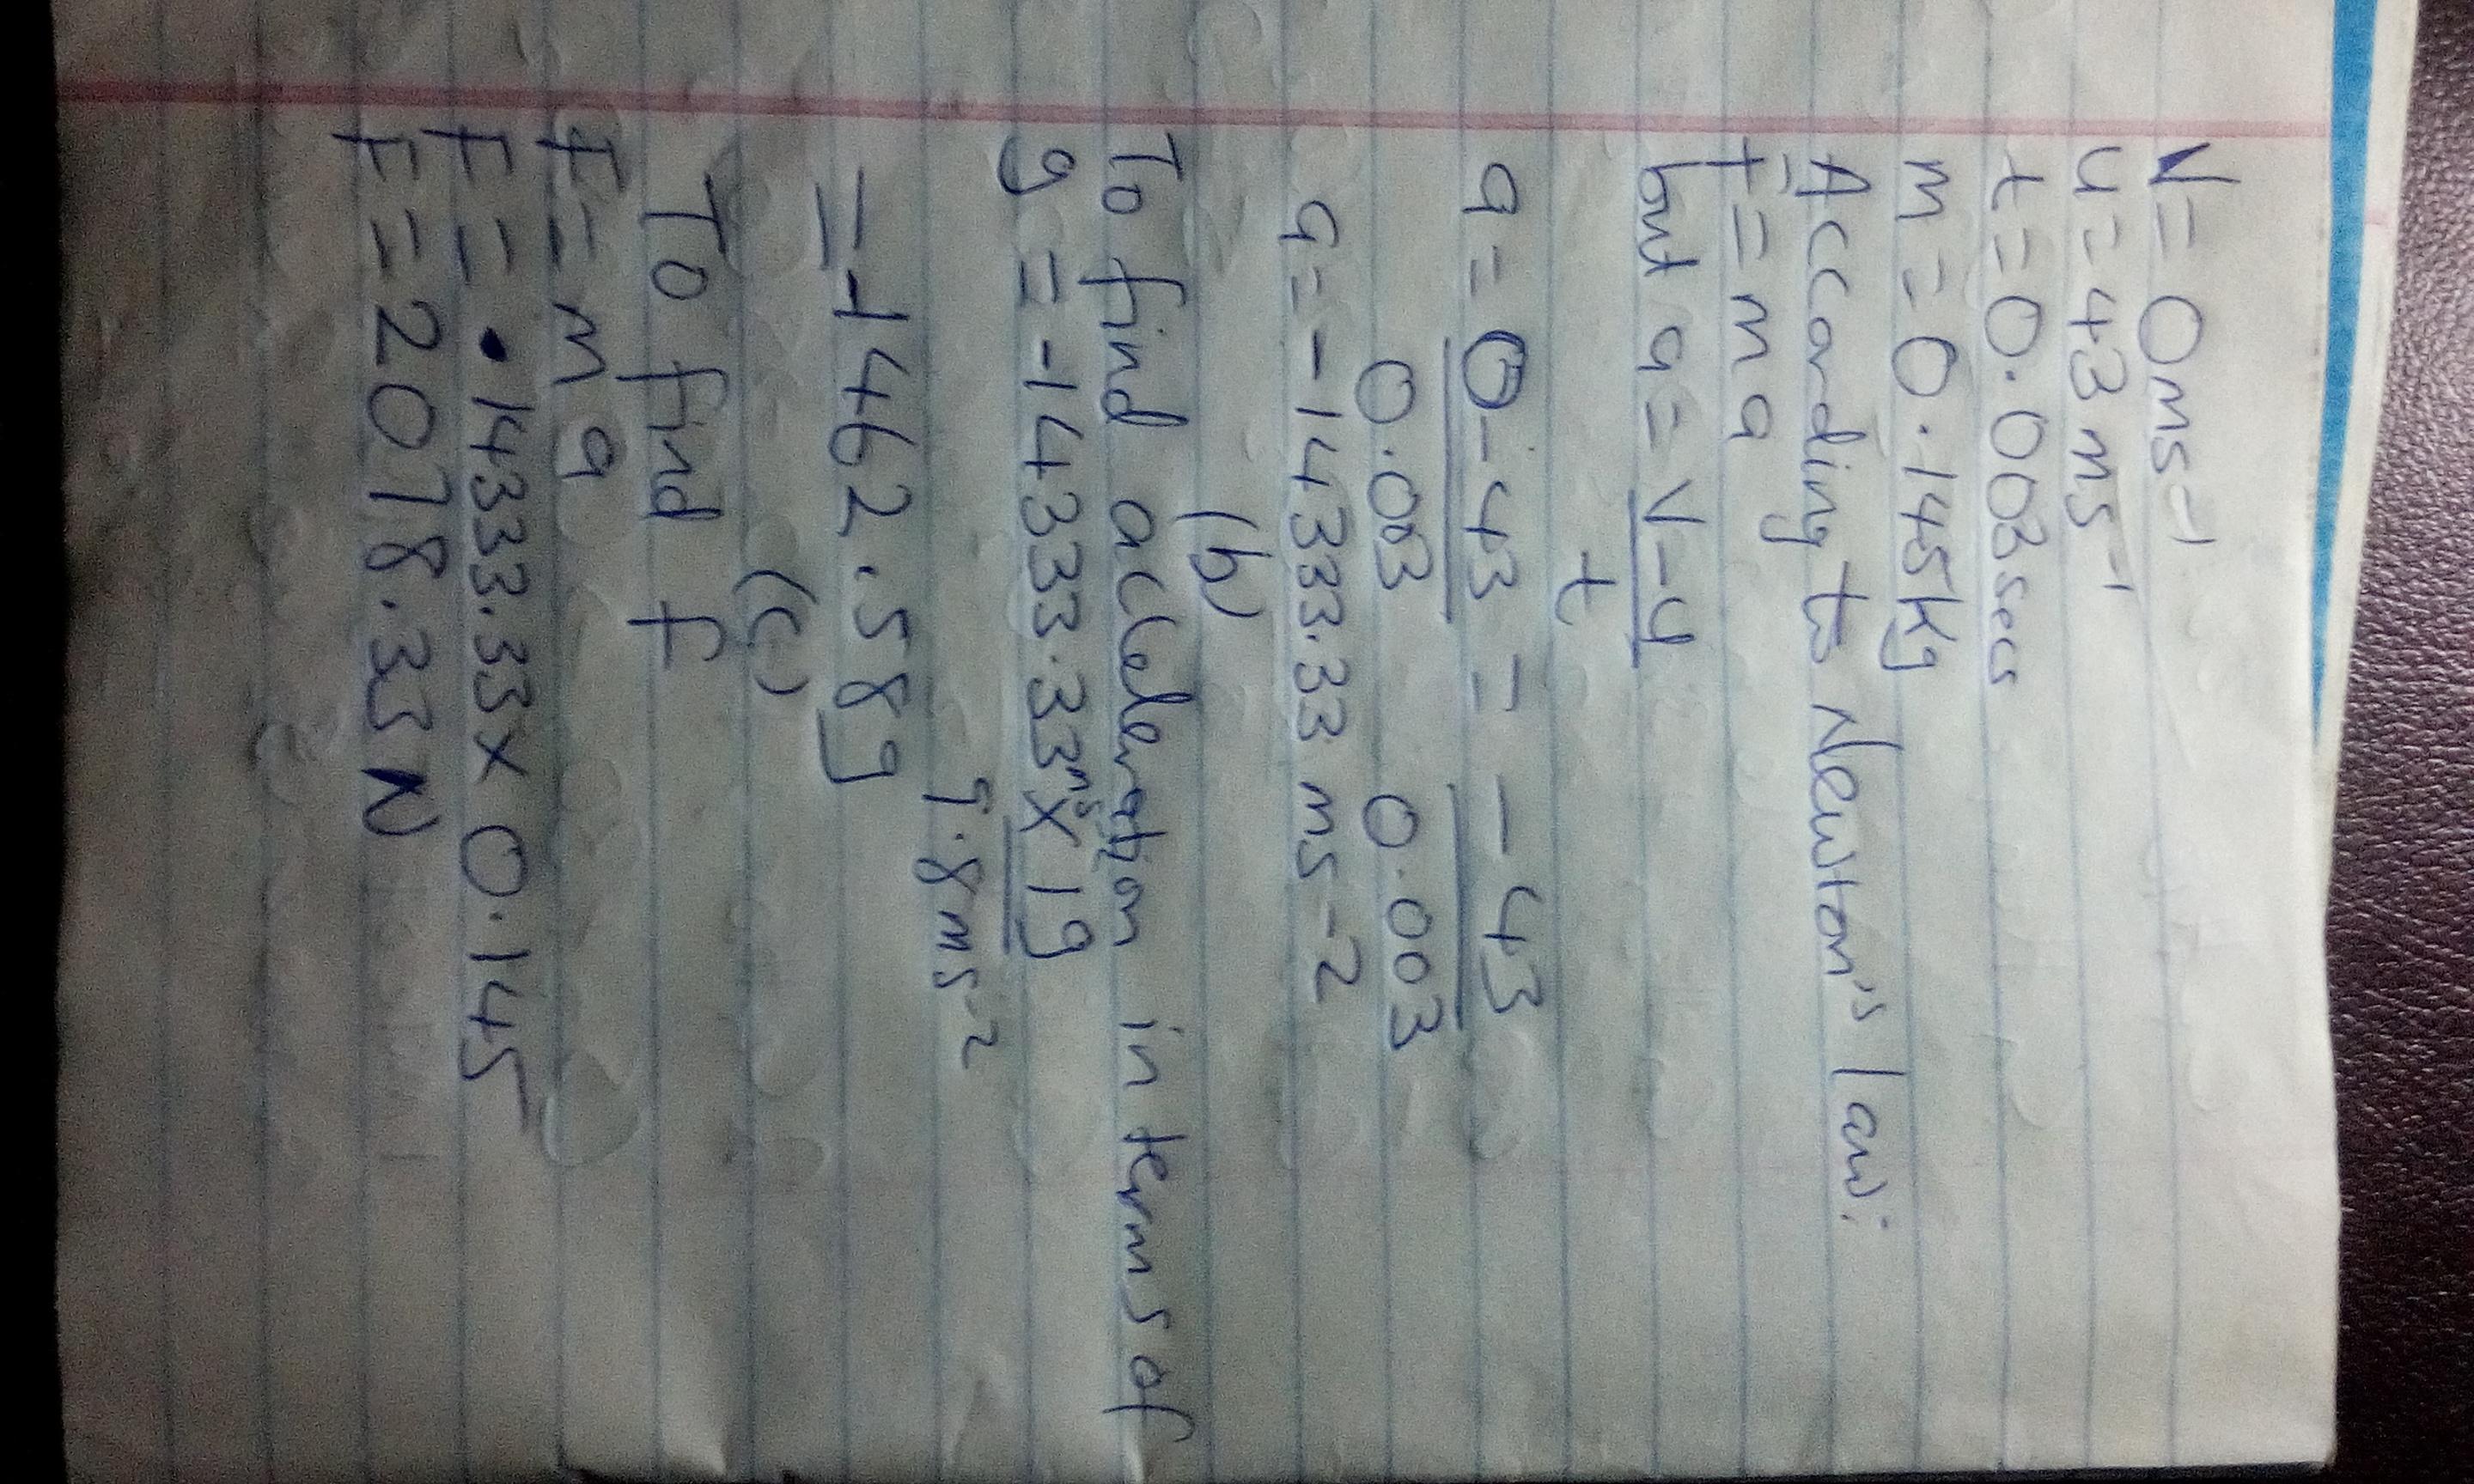 V = 0ms-1
u = 43 ms-1
t = 0.003secs
m = 0.145kg
According to Newton's law:
F = ma
but a = V-u
t
a = 0-43 = -43
0.003 0.003
a = -14333.33 ms-2
(b)
To find acceleration in terms of
g = -14333.33ms x 1g
9.8ms-2
= -1462.58g
(c)
To find f
F = ma
F = 14333.33 x 0.145
F = 2078.33N